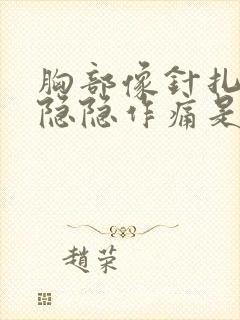 胸部像針扎
隐隐作痛是
趙荣